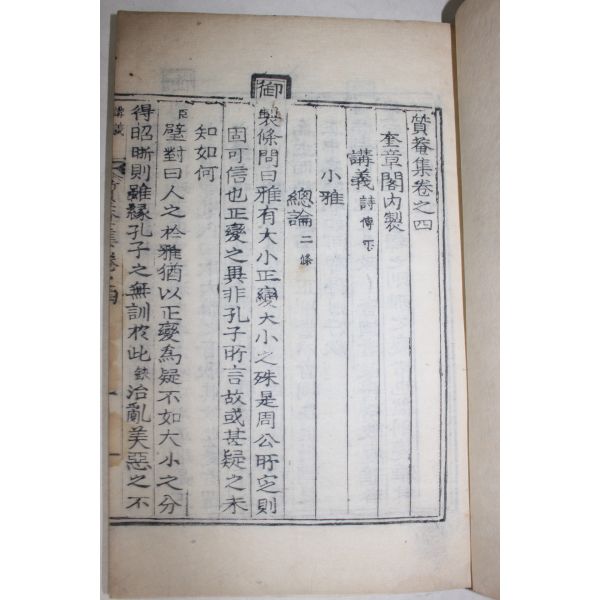 質菴集卷之四
奎章閣內製
講義 詩傳下
小雅
總論 二條
御製條問曰雅有大小正變大小之殊是周公所定則
固可信也正變之異非孔子所言故或甚疑之未
知如何
臣壁對曰人之於雅猶以正變爲疑不如大小之分
得昭晣則雖緣孔子之無訓於此然治亂美惡之不